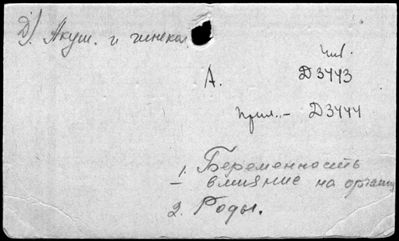 Д). Акуш. и гинекол.
Чит.
А. Д3443
Прил. – Д3444
1. Беременность
– влияние на организ
2. Роды.